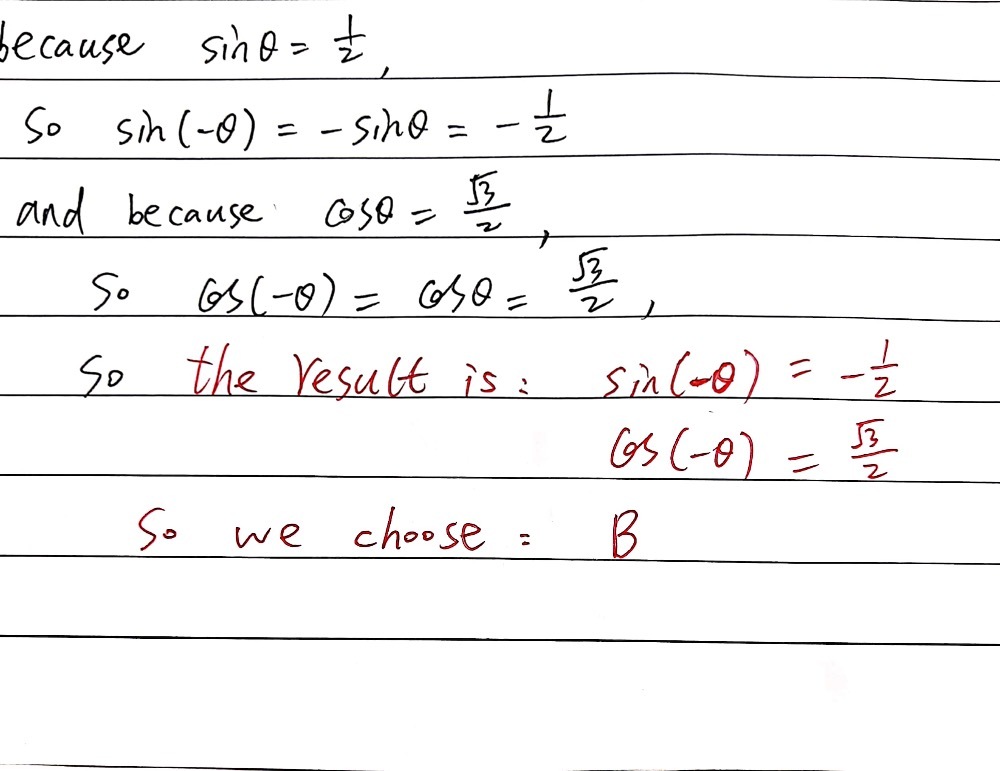 because sinθ = 1/2,
So sin(-θ) = -sinθ = -1/2
and because cosθ = √3/2,
So cos(-θ) = cosθ = √3/2,
So the result is: sin(-θ) = -1/2
cos(-θ) = √3/2
So we choose: B